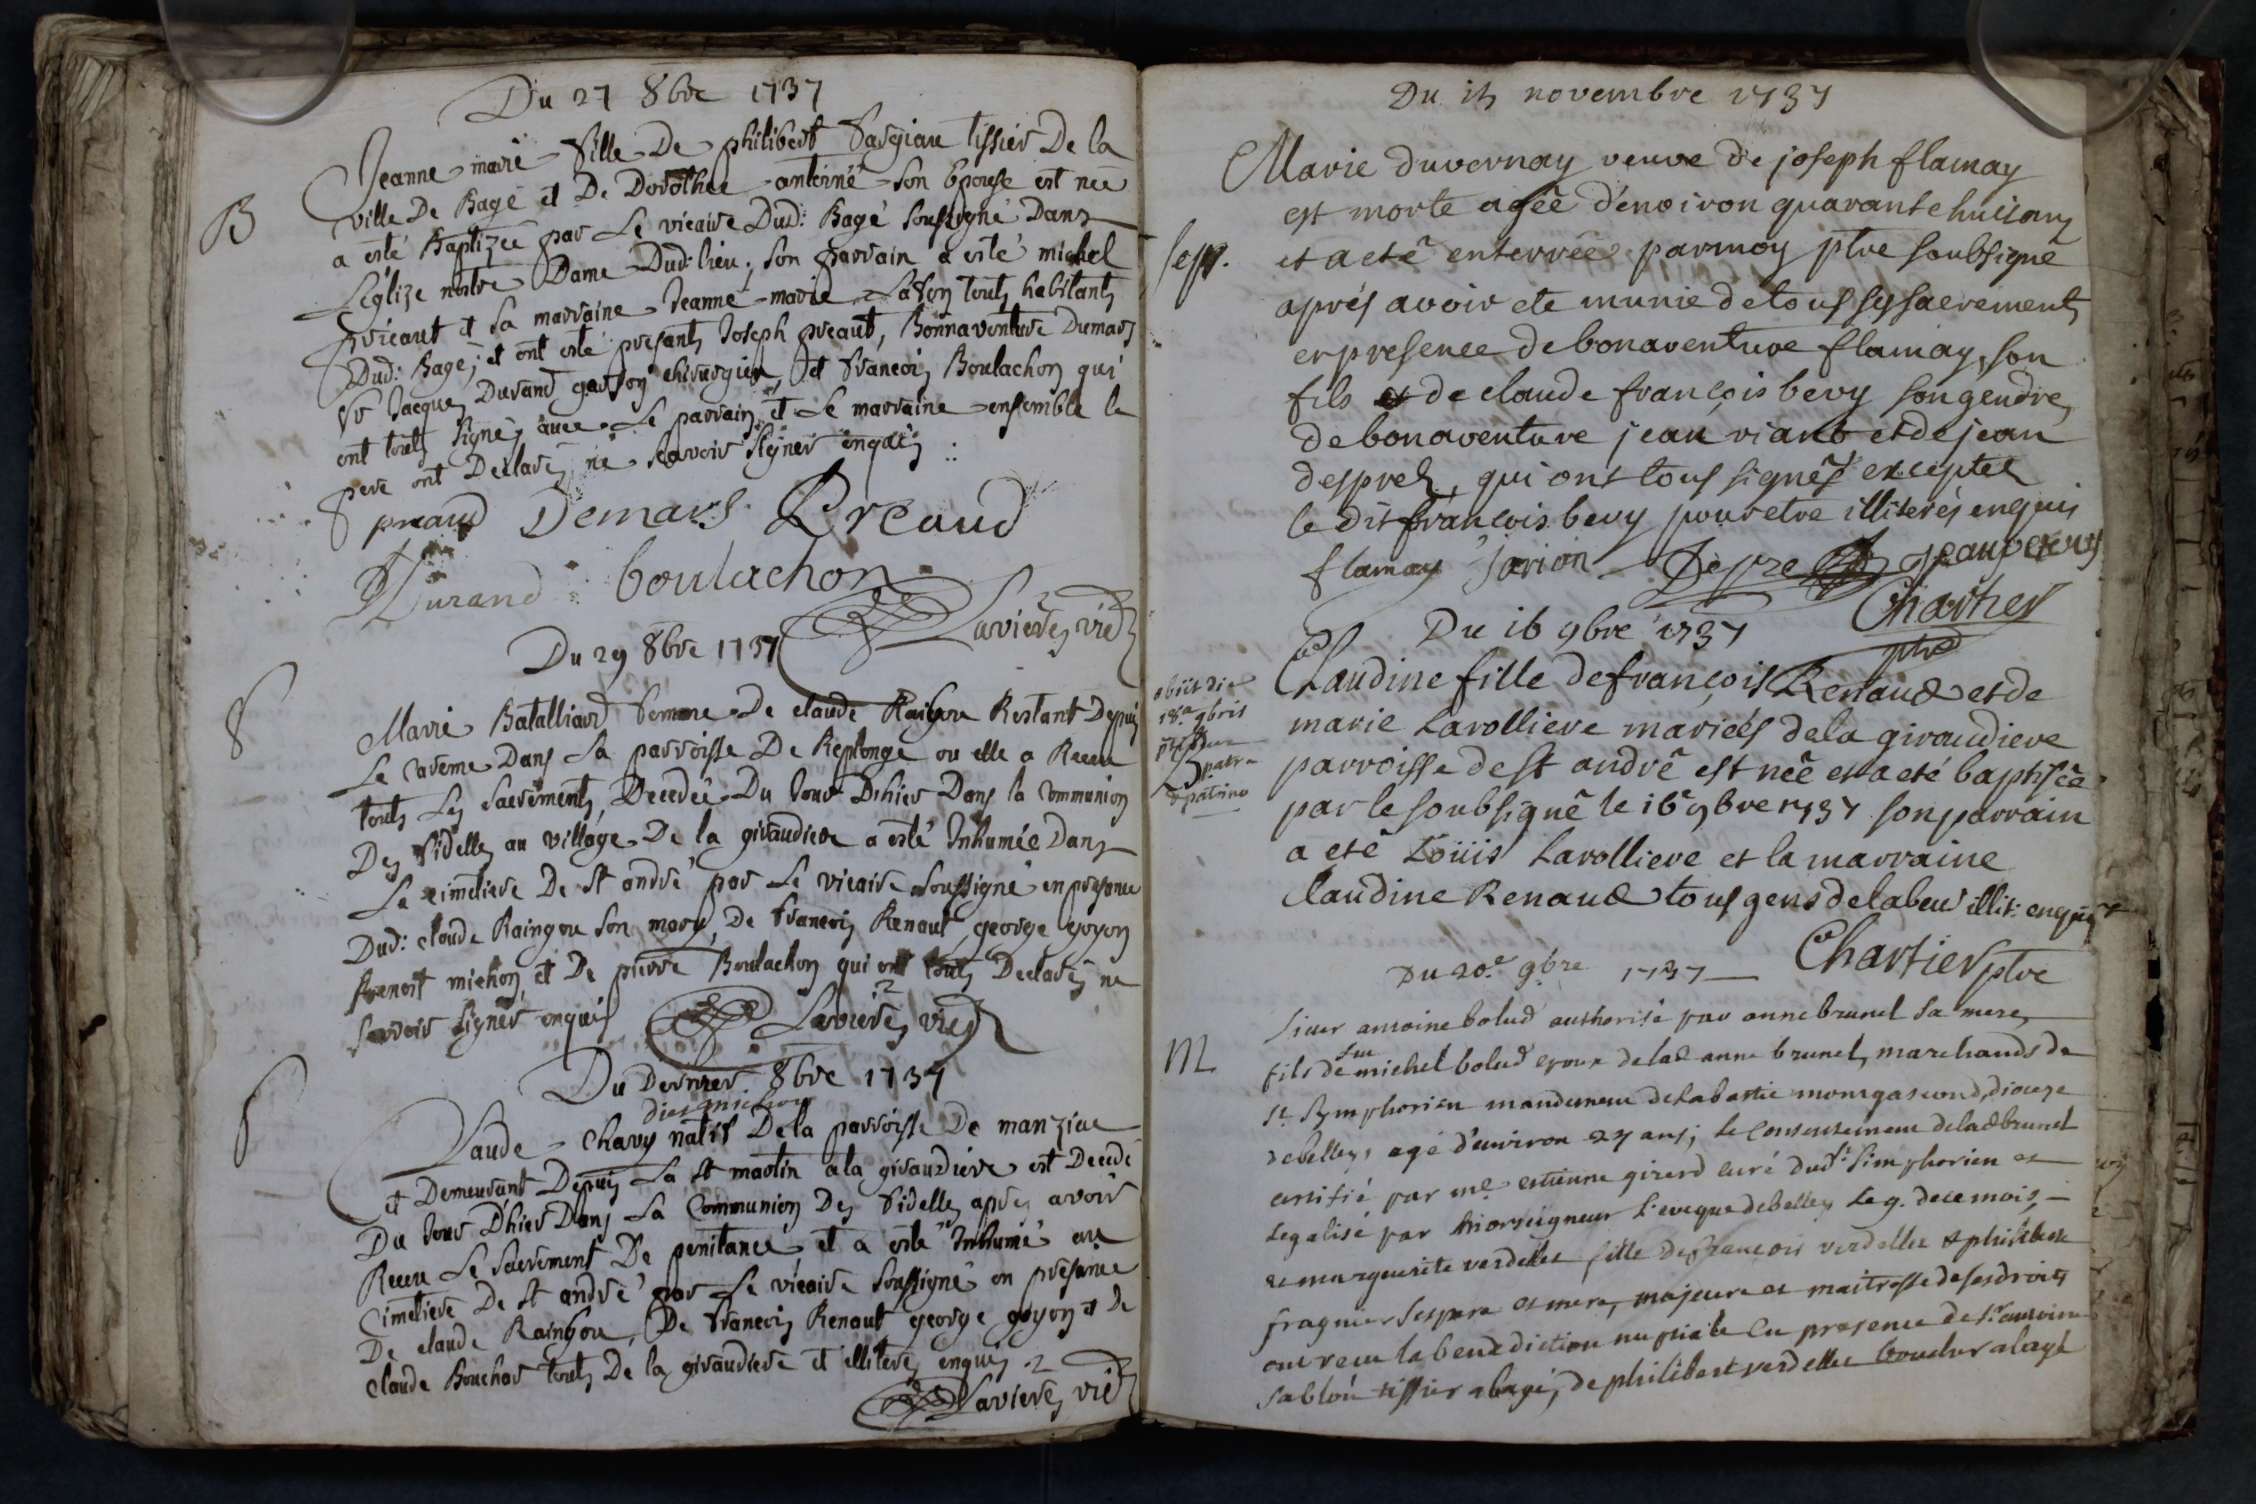 Du 27 8bre 1737
B
Jeanne marie fille De philibert fargiau tissier De la
ville De Bagé et De Dorothée antoine son Epouse est née
a esté Baptizée par Le vicaire Dud: Bagé soussigné Dans
L'églize nostre Dame Dud: lieu; son parrain a esté michel
pricaut et sa marraine Jeanne marie touts habitants
Dud: Bagé; et ont esté presants Joseph preaut, Bonnaventure Dumars
Sr Jacques Durand garson chirurgien, et francois Boulachon qui
ont touts signés avec Le parrain et Le marraine ensemble le
pere ont Declarés ne scavoir signer enquis
preaud Demars Preaud
Durand boulachon
Lavieres vic
Du 29 8bre 1737
S
Marie Batalliard femme De claude Raingou Restant Depuis
Le careme Dans la parroisse De Replonge ou elle a Receu
touts Les sacrements, Decedée Du Jour D'hier Dans la communion
Des fidelles au village De la giraudiere a esté Inhumée Dans
Le cimetiere De st andré par Le vicaire soussigné en presance
Dud: claude Raingou son mary, De francois Renaut, george goyon
benoit michon et De pierre Boulachon qui ont touts Declarés ne
scavoir signer enquis
Lavieres vic
Du Dernier 8bre 1737
S
dies michon
Claude Chavy natif De la parroisse De manziat
et Demeurant Depuis La st martin a la giraudiere est Decedé
Du Jour D'hier Dans La Communion Des fidelles apres avoir
Receu Le sacrement De penitance et a esté Inhumé au
cimetiere De st andré par Le vicaire soussigné en presance
De claude Raingou, De francois Renaut george goyon et de
claude Bouchar touts De la giraudiere et illiteres enquis
Lavieres vic
Du 15 novembre 1737
Sep.
Marie duvernay veuve de joseph flamay
est morte agée d'environ quarante huit ans
et a eté enterrée par moy ptre soubsigné
aprés avoir eté munie de tous ses sacrements
en presence de bonaventure flamay, son
fils et de claude françois bevy son gendre,
de bonaventure jean viant et de jean
desprel, qui ont tous signés exceptez
le dit françois bevy pour etre illiterés enquis
flamay jarion Depre
Chartier
ptre
Du 16 9bre 1737
obiit die
18a 9bris
patre
& patrino
Claudine fille de françois Renaud et de
marie Larolliere mariés de la giraudiere
parroisse de st andré est née et a eté baptisée
par le soubsigné le 16e 9bre 1737 son parrain
a eté Loüis Larolliere et la marraine
Claudine Renaud tous gens de labeur illit: enquis
Chartier ptre
Du 20e 9bre 1737
M
sieur antoine bolud authorisé par anne brunel sa mere,
fils de feu michel bolud epoux de lad anne brunel, marchands de
St Symphorien mandement de la bastie diocese
de belley, agé d'environ 27 ans; le consentement de lad brunel
certifié par mre estienne girerd curé dudt simphorien et
legalisé par Monseigneur L'eveque de belley le 9. de ce mois,
et marguerite verdellet fille de francois verdellet & philiberte
fragnier ses pere et mere, majeure et maitresse de ses droits
ont receu la benediction nuptiale en presence de sr antoine
sablon tissier a bagé, de philibert verdellet boucher a bagé